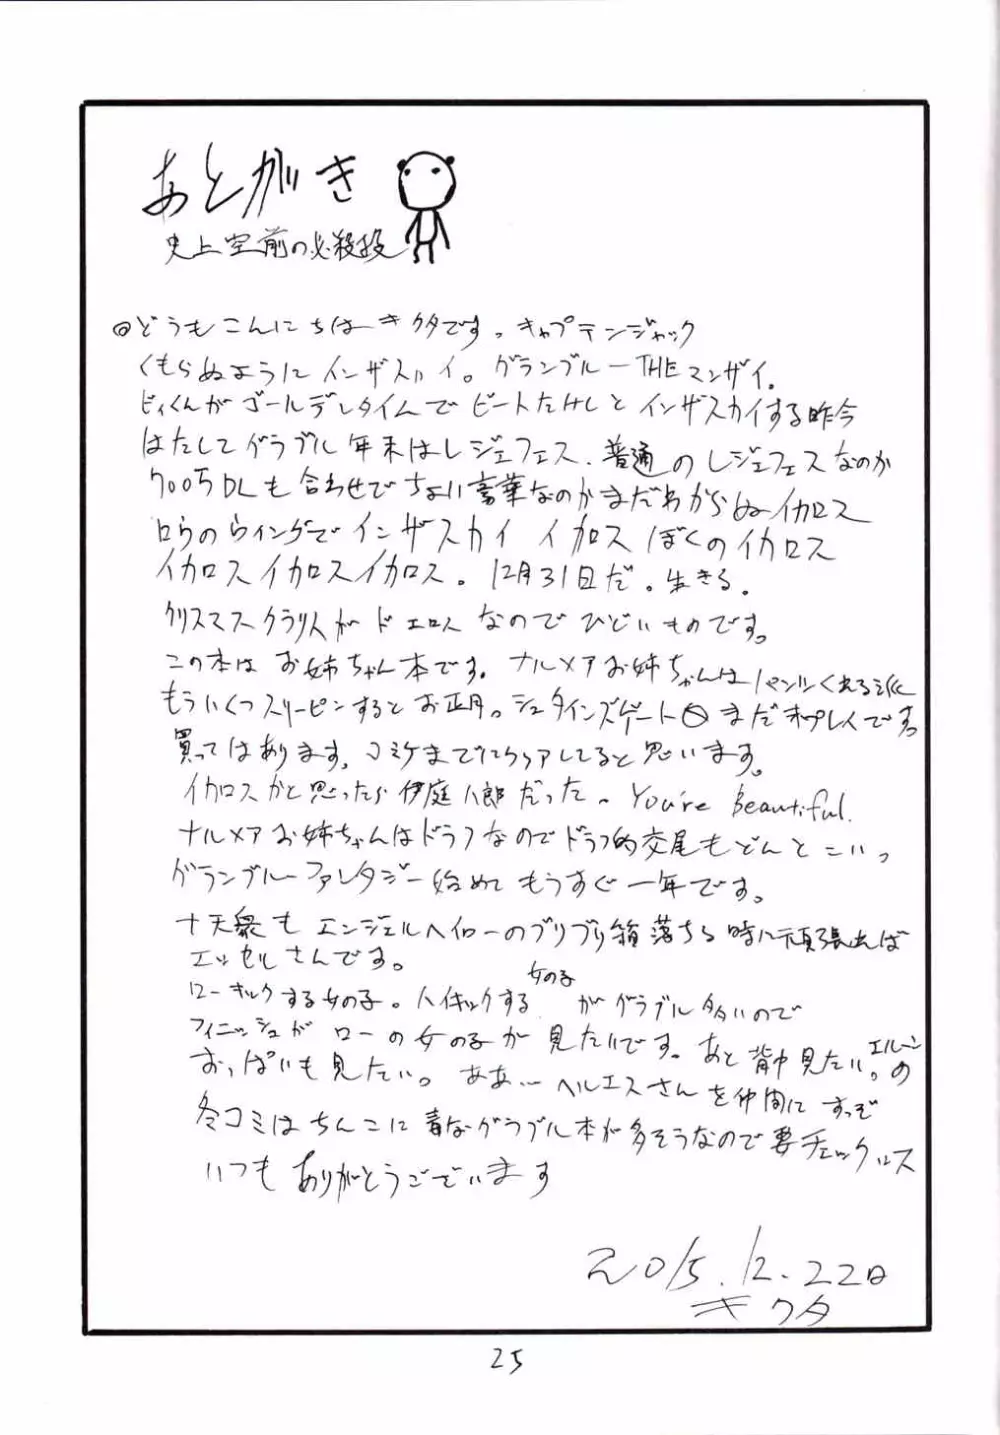 あとがき
史上空前の必殺投
◎どうもこんにちはキクタです。キャプテンジャック
くもらぬように インザスカイ。グランブルーTHEマンザイ。
ビィくんがゴールデンタイムでビートたけしとインザスカイする昨今
はたしてグラブル年末はレジェフェス、普通のレジェフェスなのか
700万DLも合わせでちょい豪華なのかまだわからぬイカロス
ロウのウィングでインザスカイ イカロス ぼくのイカロス
イカロスイカロスイカロス。12月31日だ。生きる。
クリスマスクラリスがドエロスなのでひどいものです。
この本はお姉ちゃん本です。ナルメアお姉ちゃんはパンツくれる派
もういくつスリーピンするとお正月。シュタインズゲート0まだ未プレイです。
買ってはあります。コミケまでにクリアしてると思います。
イカロスかと思ったら伊庭八郎だった。You're Beautiful.
ナルメアお姉ちゃんはドラフなのでドラフ的交尾もどんとこいっ
グランブルーファンタジー始めてもうすぐ一年です。
十天衆もエンジェルヘイローのブリブリ箱落ちる時に頑張れば
エッセルさんです。
ローキックする女の子。ハイキックする女の子がグラブル多いので
フィニッシュがローの女の子が見たいです。あと背中見たい。エルーンの
おっぱいも見たい。ああ…ヘルエスさんを仲間にすっぞ
冬コミはちんこに毒なグラブル本が多そうなので要チェックロス
いつもありがとうございます
2015.12.22日
キクタ
25